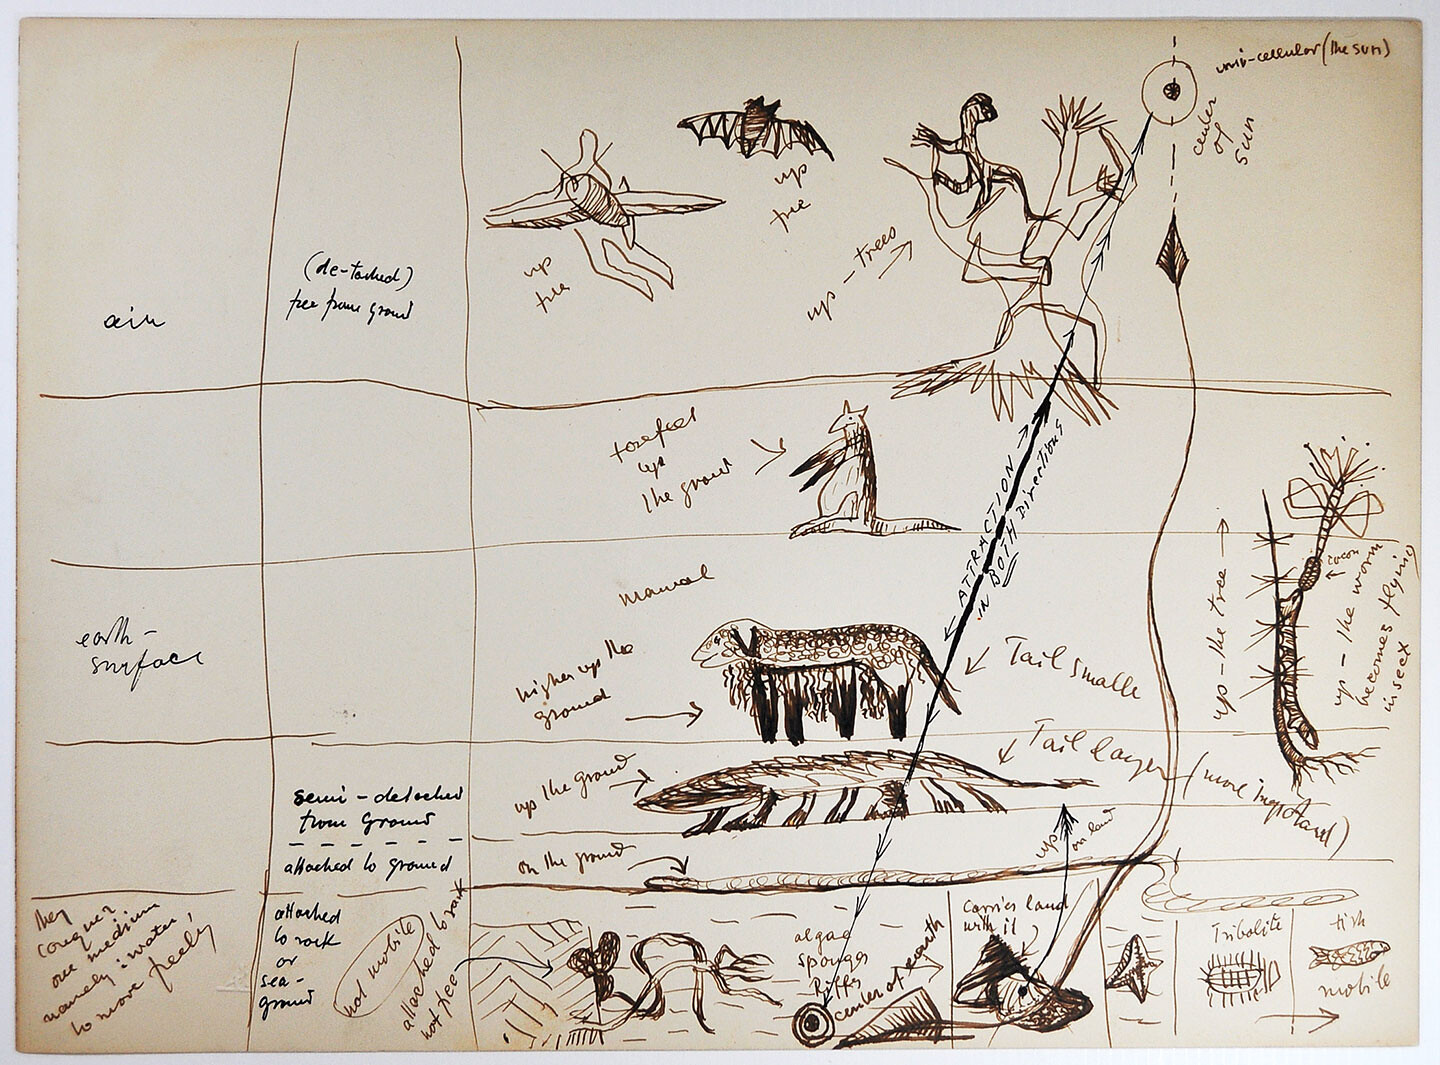 uni-cellular (the sun)
center
of
sun
up
free
up
free
up-trees
(de-tached)
free from ground
air
forefeet
up
the ground
ATTRACTION
IN BOTH Directions
mamal
earth-
surface
higher up the
ground
Tail smaller
up-the tree
cocon
up-the worm
becomes flying
insect
up the ground
Tail larger (more important)
semi-detached
from Ground
attached to ground
on the ground
up
on land
they
conquer
one medium
namely: water,
to move freely
attached
to rock
or
sea-
ground
not mobile
attached to rock
not free
algae
sponges
center of earth
Carries land
with it
Tribolite
fish
mobile